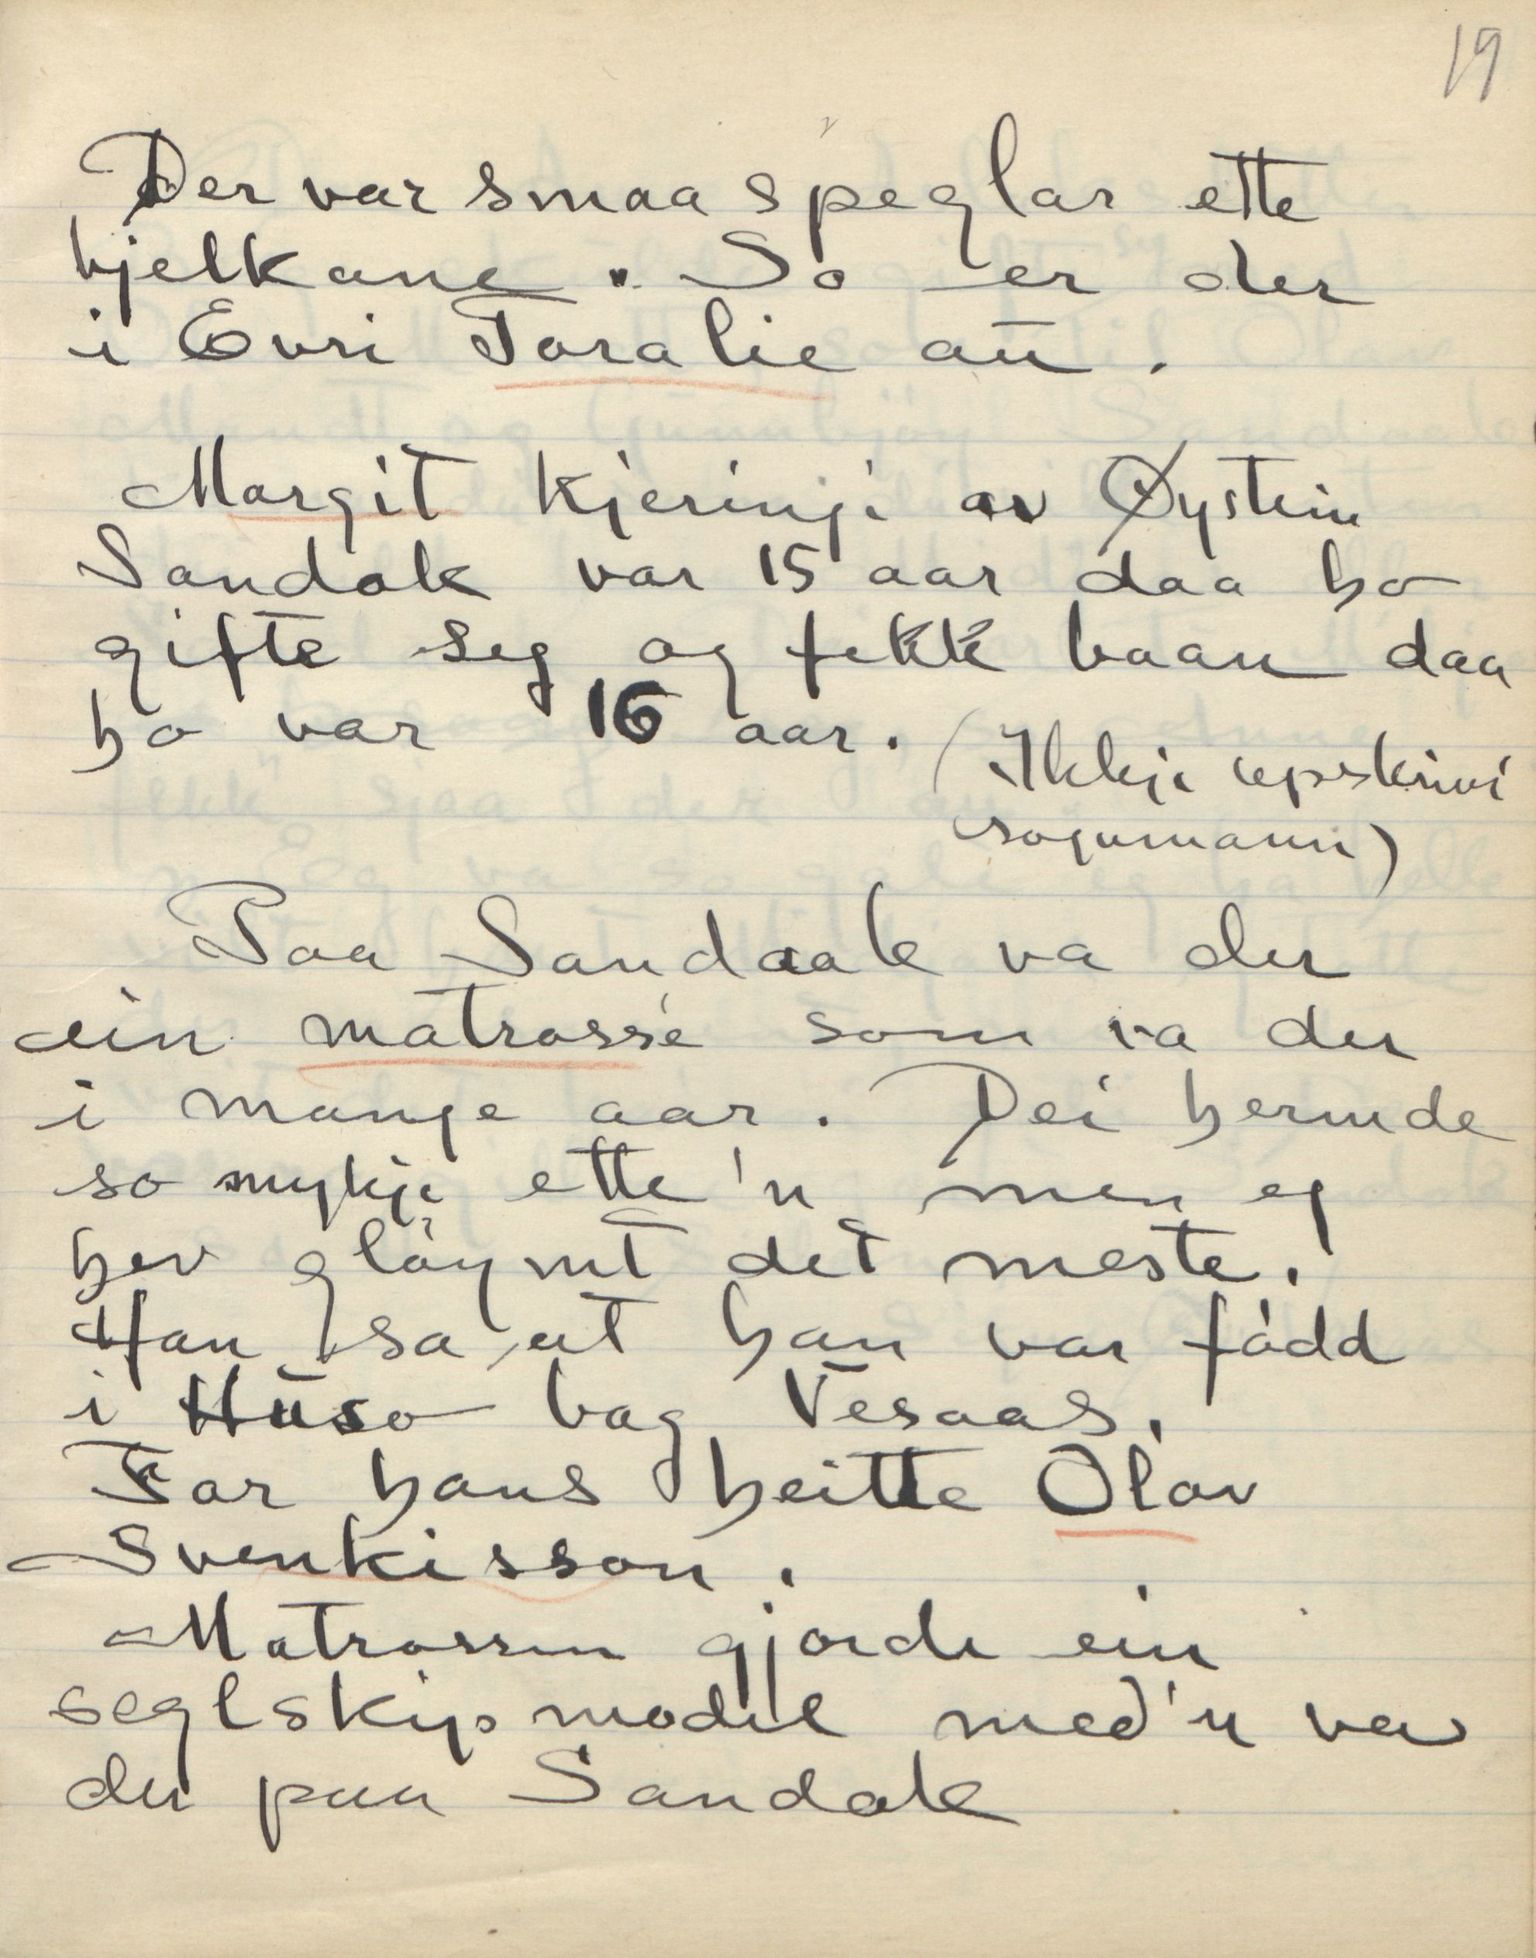 19
Der var smaa speglar ette
bjelkane. So er der
i Evri Toralie au.
Margit kjeringi av Øystein
Sandok var 15 aar daa ho
gifte seg og fekk baan daa
ho var 16 aar.
(Ikkje uppskrivi
sogumann)
Paa Sandaak va der
ein matrosse som va der
i mange aar. Dei hermde
so mykje ette'n men eg
hev gløymt det meste.
Han sa at han var fødd
i Huso bag Vesaas.
Far hans heitte Olav
Svenkisson.
Matrossen gjorde ein
seglskipsmodel med'n va
der paa Sandok